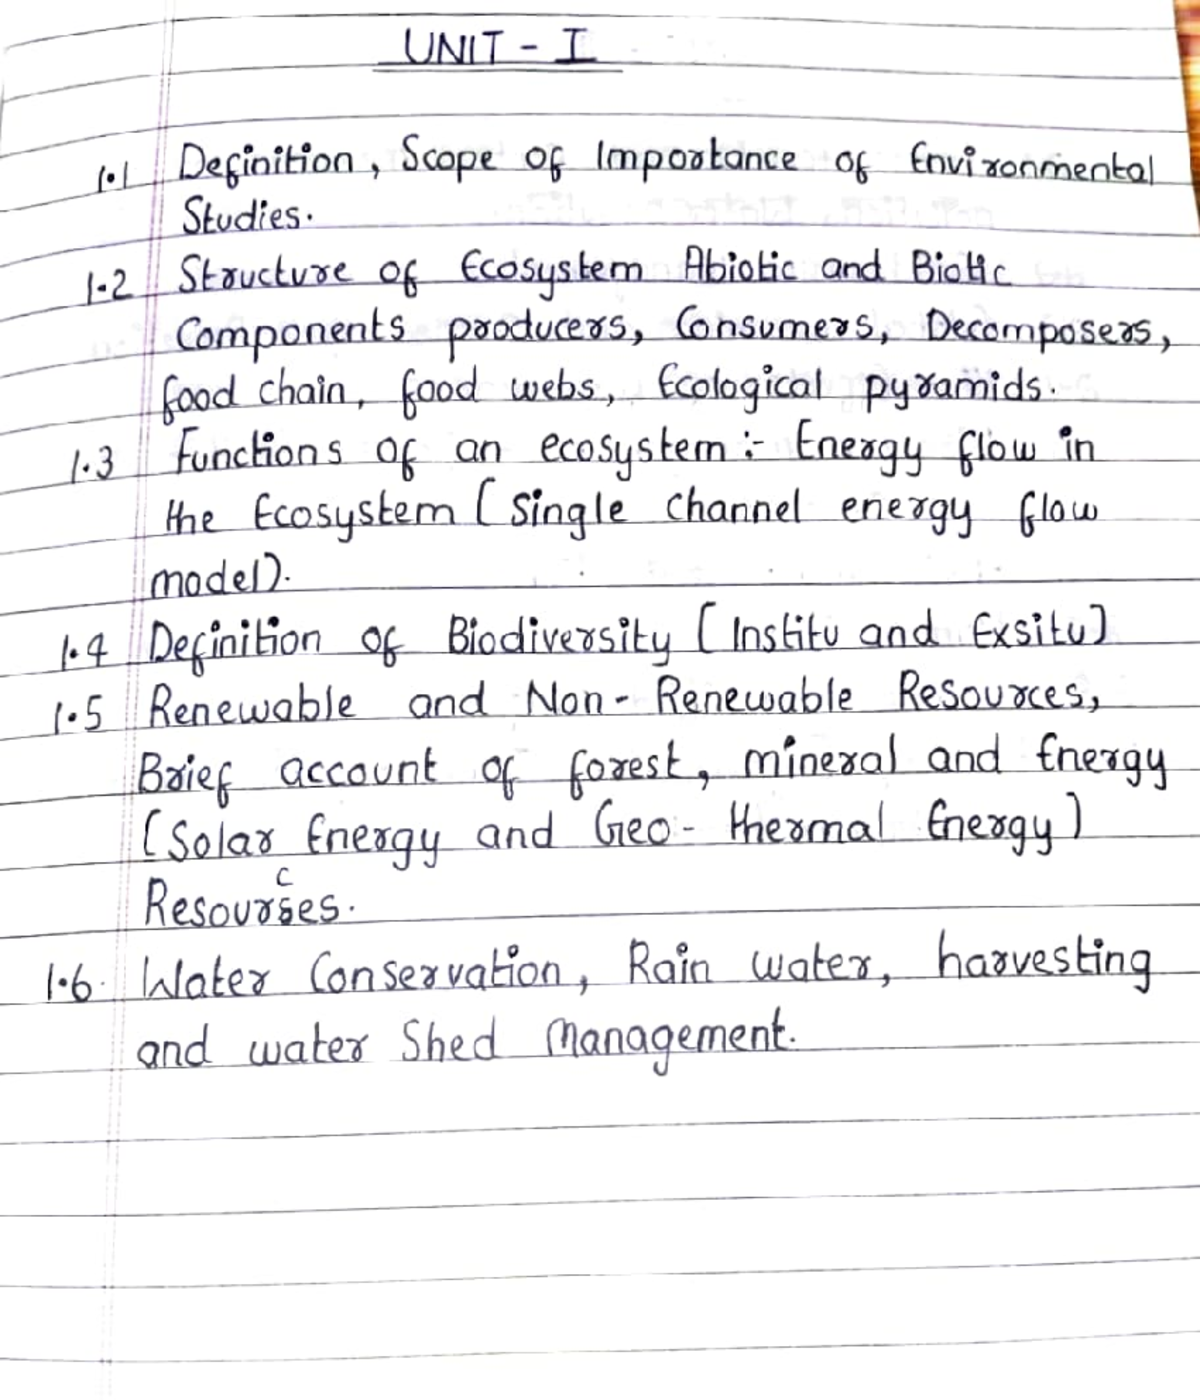 UNIT - I
1.1 Definition, Scope of Importance of Environmental
Studies.
1.2 Structure of Ecosystem Abiotic and Biotic
Components producers, Consumers, Decomposers,
food chain, food webs, Ecological pyramids.
1.3 Functions of an ecosystem :- Energy flow in
the Ecosystem [Single channel energy flow
model).
1.4 Definition of Biodiversity [Institu and Exsitu]
1.5 Renewable and Non-Renewable Resources,
Brief account of forest, mineral and Energy
[Solar Energy and Geo-thermal Energy]
Resources.
1.6. Water Conservation, Rain water, harvesting
and water Shed Management.